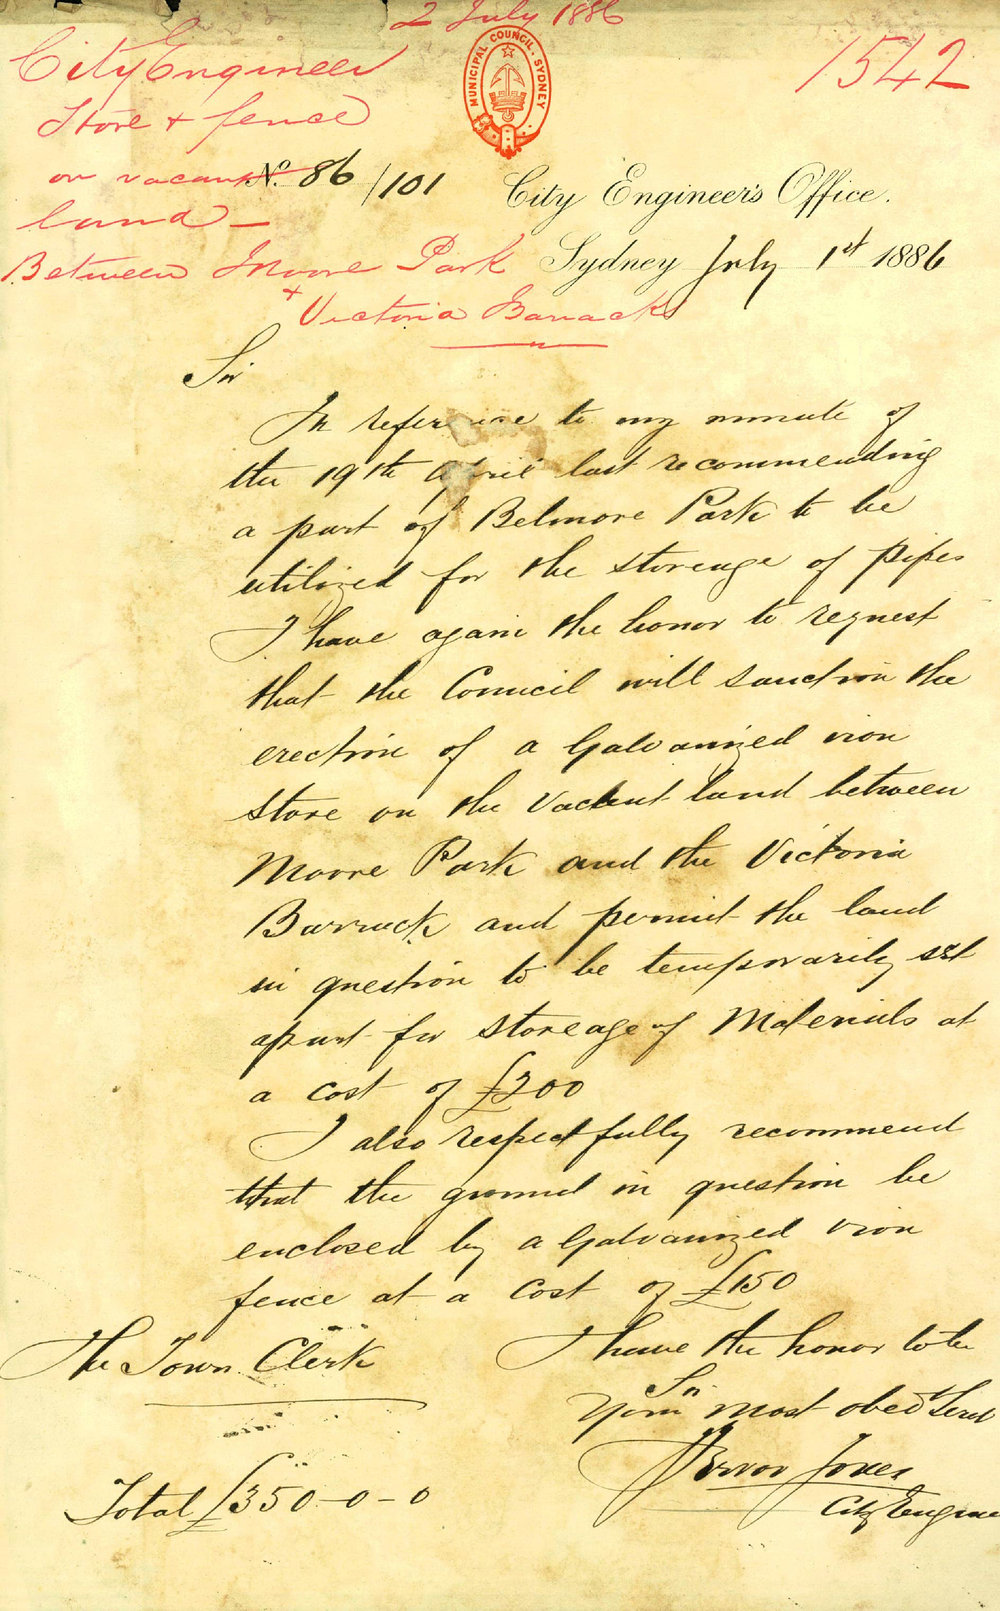 2 July 1886
1542
MUNICIPAL COUNCIL. SYDNEY
City Engineer
Store & fence
on vacant
land —
Between Moore Park
& Victoria Barracks
No. 86/101
City Engineer's Office.
Sydney July 1st 1886
Sir
In reference to my minute of
the 19th April last recommending
a part of Belmore Park to be
utilized for the storeage of pipes
I have again the honor to request
that the Council will sanction the
erection of a Galvanized iron
store on the vacant land between
Moore Park and the Victoria
Barrack and permit the land
in question to be temporarily set
apart for storeage of Materials at
a cost of £200
I also respectfully recommend
that the ground in question be
enclosed by a Galvanized iron
fence at a cost of £150
The Town Clerk
I have the honor to be
Sir
Your most obed Servt
Jones
City Engineer
Total £350-0-0